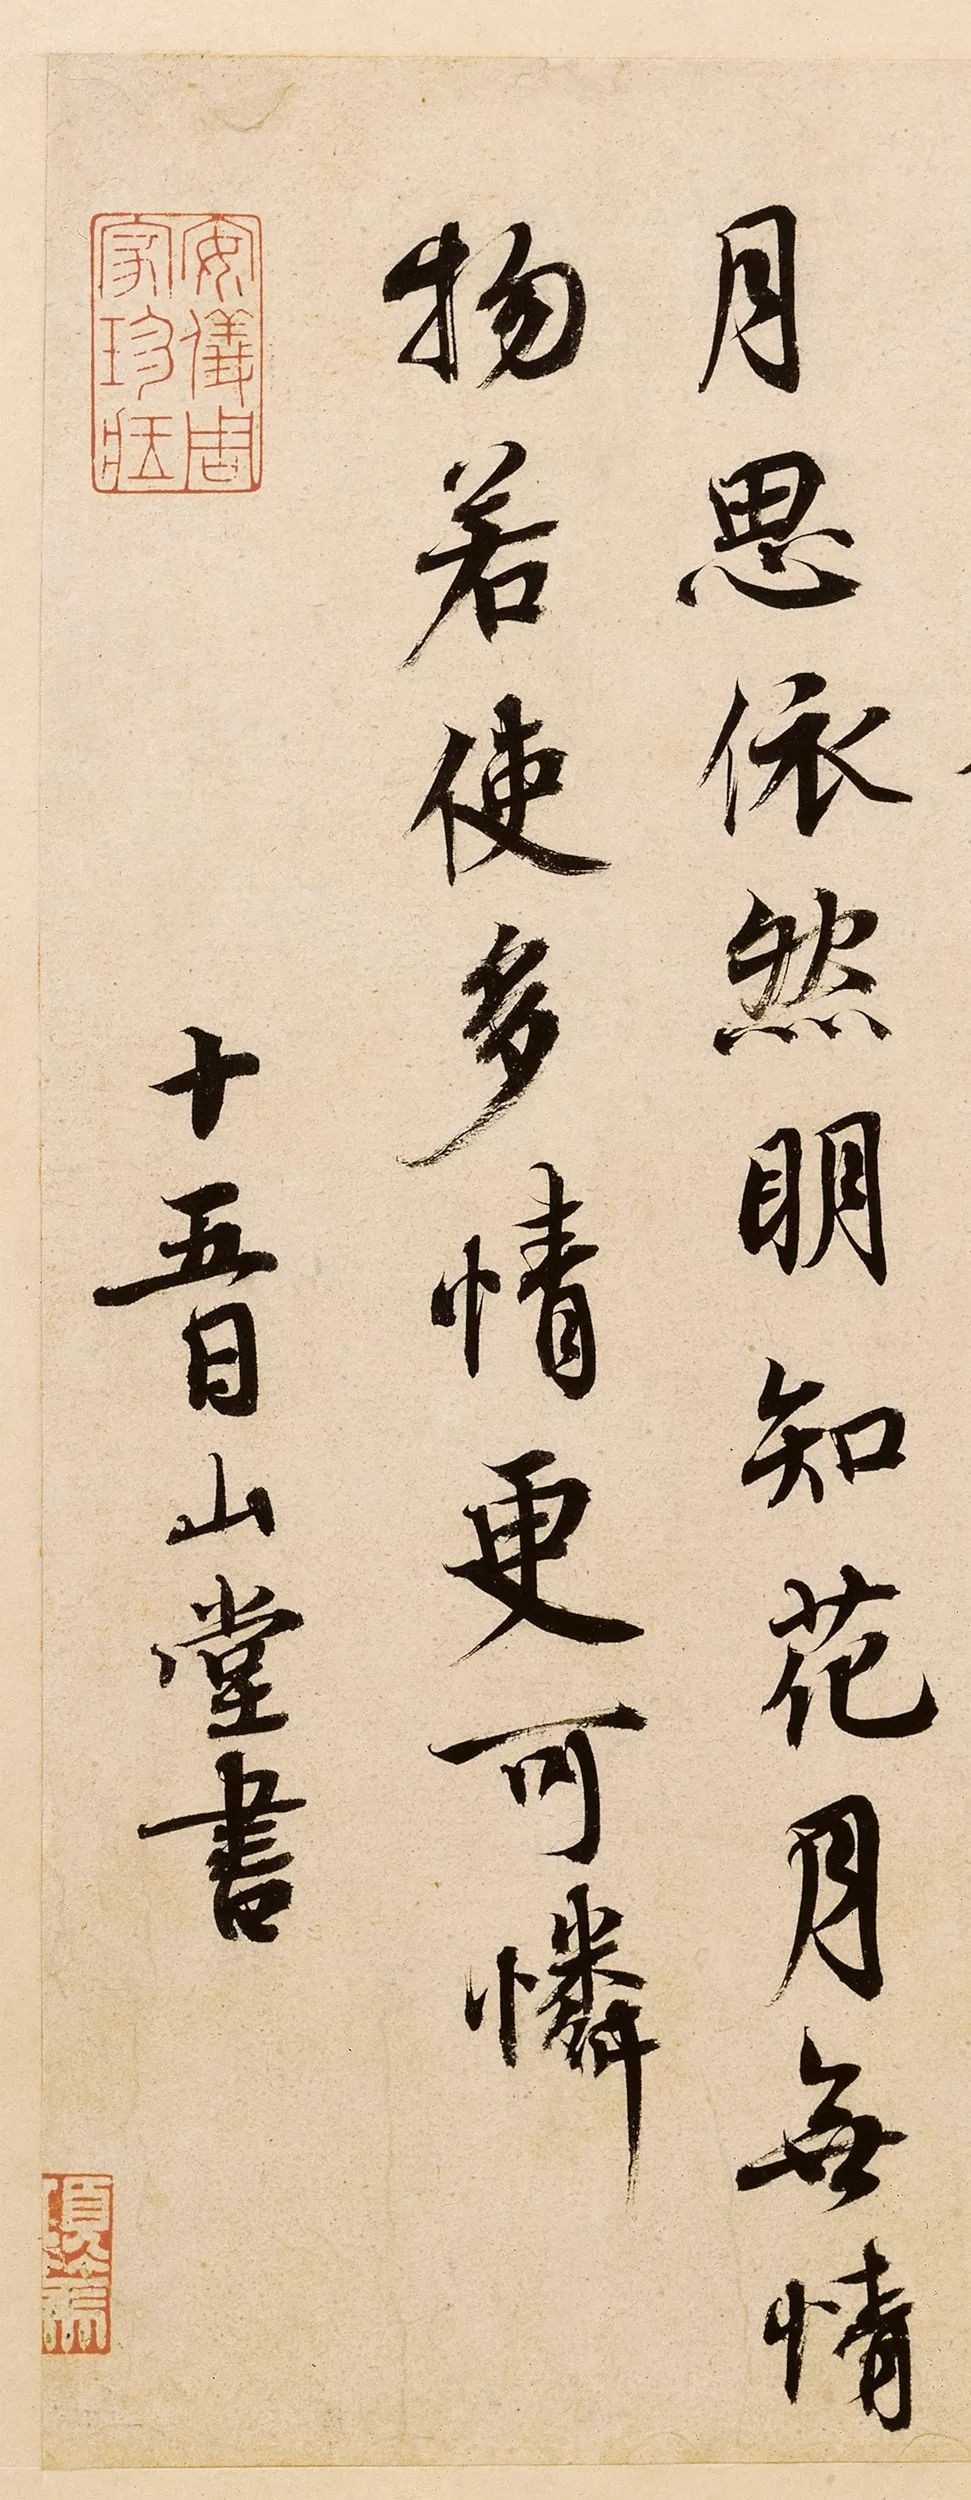 月思依然明知花月無情
物若使多情更可憐
十五日山堂書
安儀周
家珍藏